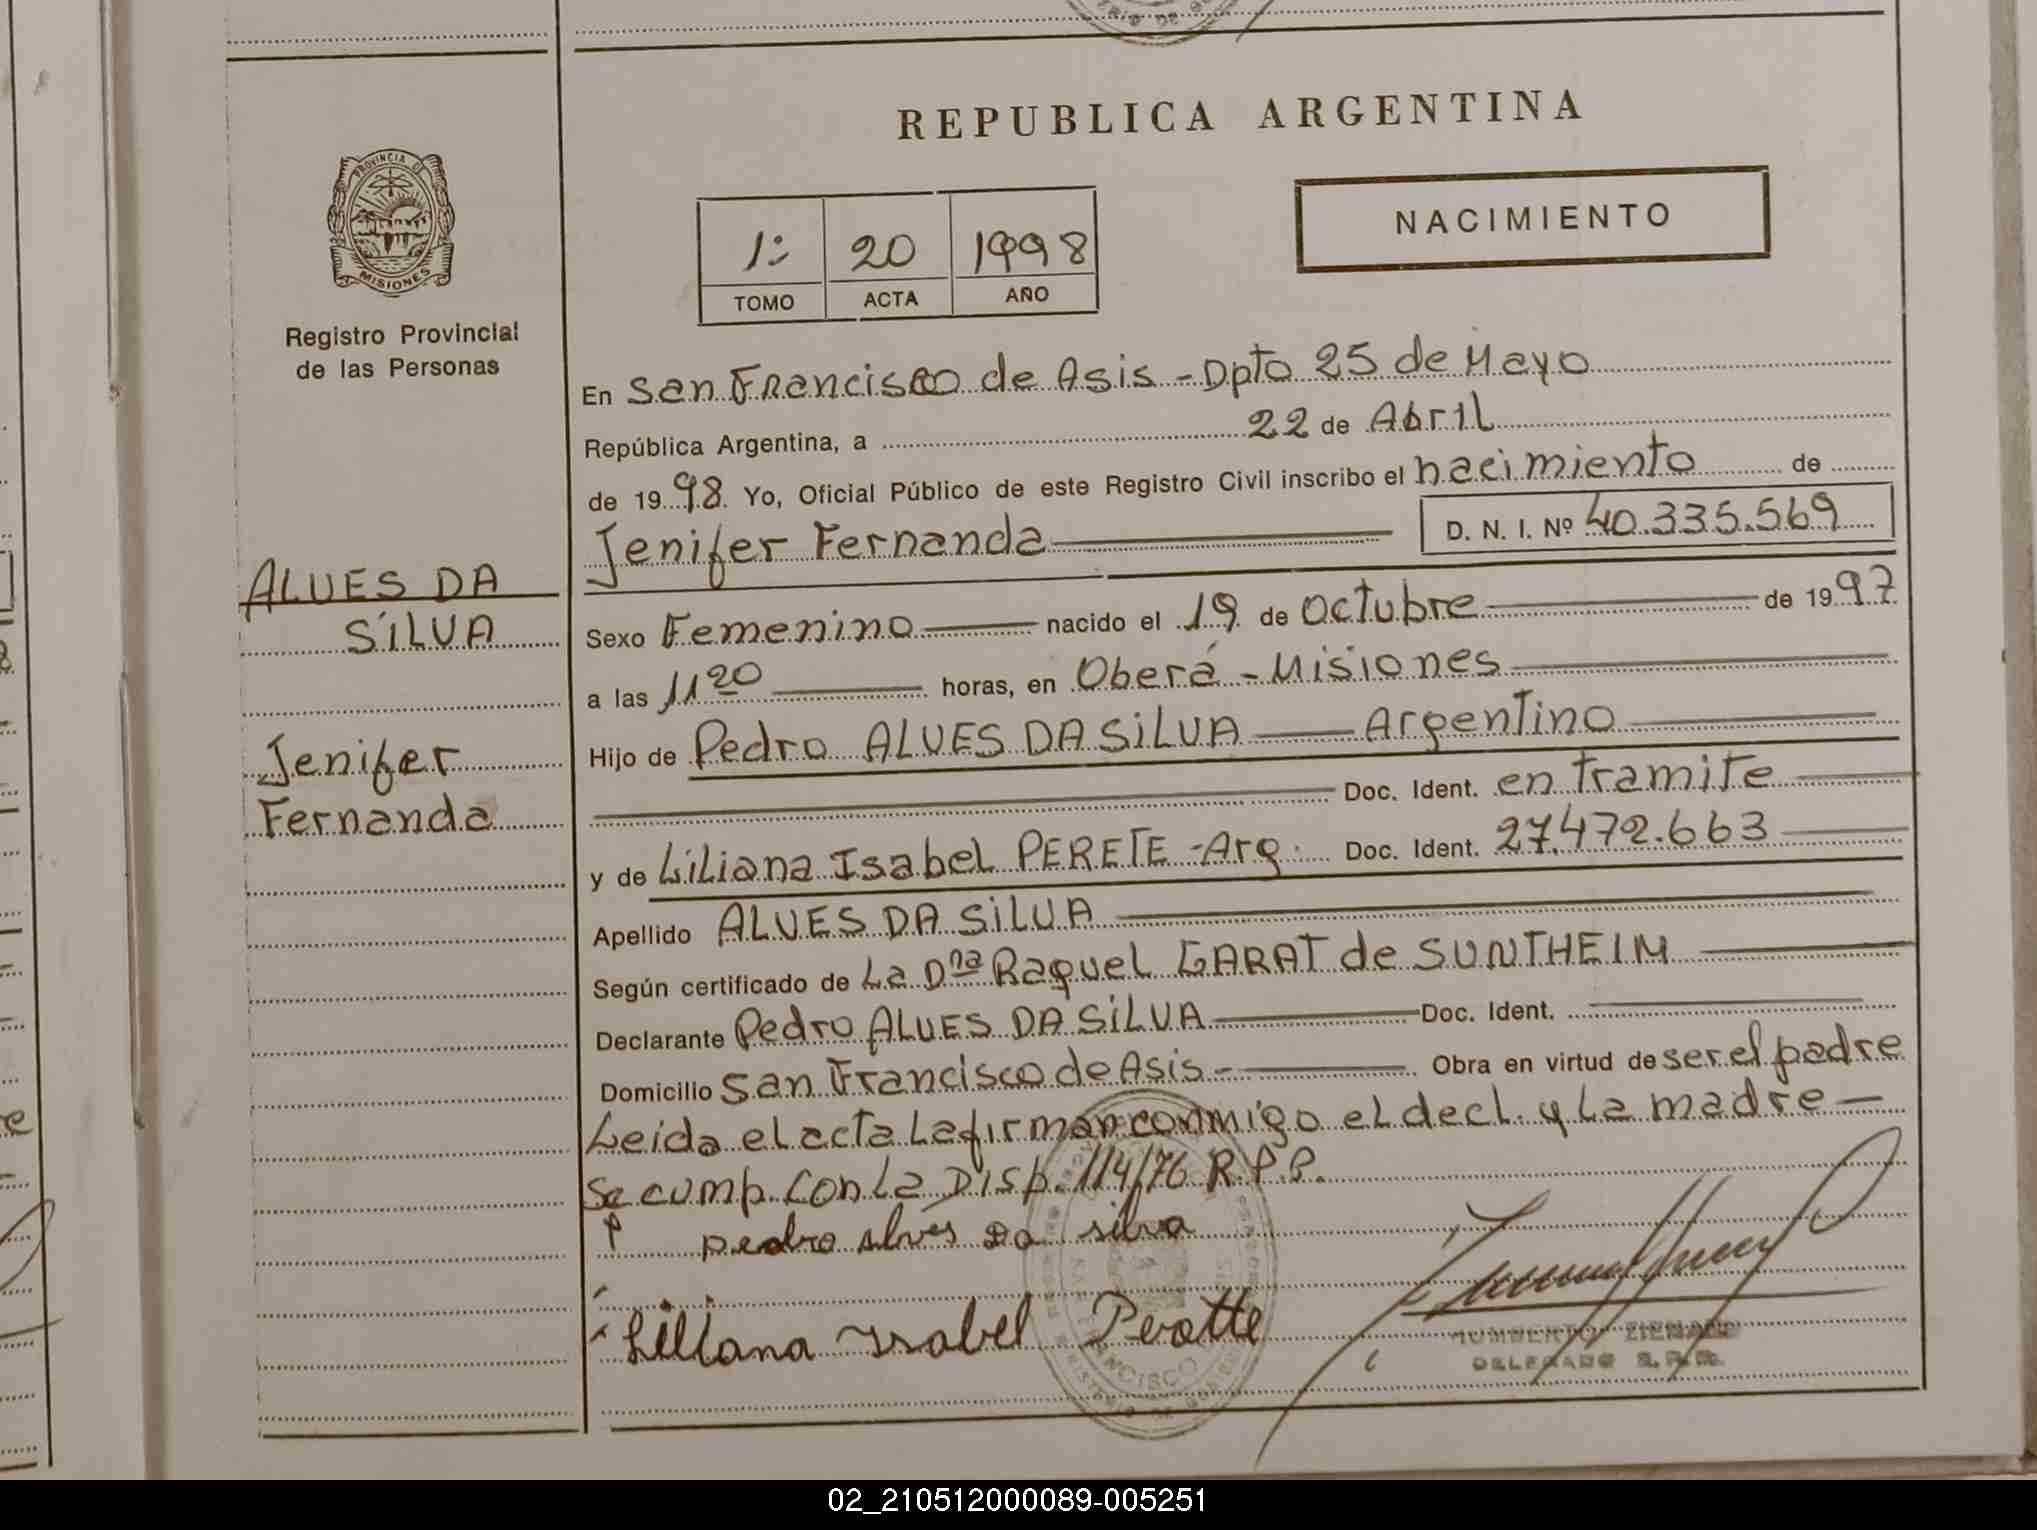 REPUBLICA ARGENTINA
PROVINCIA DE
MISIONES
Registro Provincial
de las Personas
NACIMIENTO
1: 20 1998
TOMO ACTA AÑO
En San Francisco de Asis - Dpto 25 de Mayo
República Argentina, a 22 de Abril
de 1998 Yo, Oficial Público de este Registro Civil inscribo el nacimiento de
Jenifer Fernanda D. N. I. Nº 40.335.569
ALVES DA
SILVA
Jenifer
Fernanda
Sexo Femenino nacido el 19 de Octubre de 1997
a las 11 20 horas, en Oberá - Misiones
Hijo de Pedro ALVES DA SILVA Argentino
Doc. Ident. en tramite
y de Liliana Isabel PERETE - Arg. Doc. Ident. 27.472.663
Apellido ALVES DA SILVA
Según certificado de La Dña Raquel GARAT de SUNTHEIM
Declarante Pedro ALVES DA SILVA Doc. Ident.
Domicilio San Francisco de Asis - Obra en virtud de ser el padre
Leida el acta La firman conmigo el decl. y La madre -
Se cump. con La Disp. 114/76 R.P.P.
pedro alves Da silva
Liliana Ysabel Peratte
HUMBERTO
DELEGADO
FRANCISCO
02_210512000089-005251